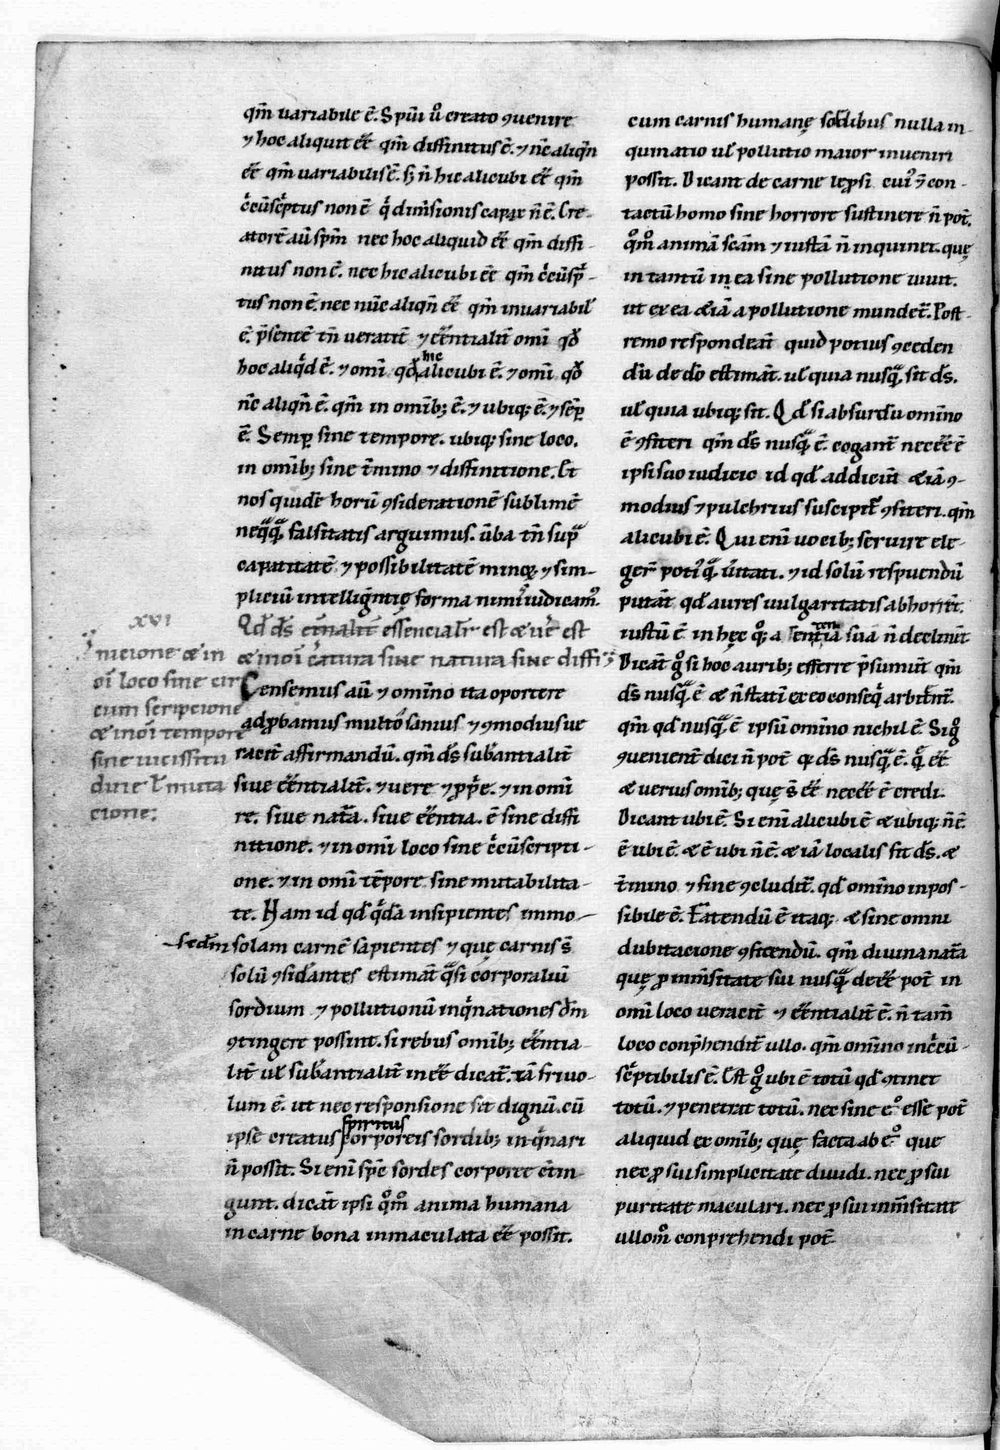 qm̄ uariabile ē. Spū̄i ů creato ꝯuenire
⁊ hoc aliquit eē̄ qm̄ diffinitus ē. ⁊ nc̄ aliqn̄
eē̄ qm̄ uariabilis ē. sꝫ n̄ hic alicubi eē̄ qm̄
c̊cūsc̄ptus non ē qͥ dim̄sionis capax n̄ ē. Cre-
atorē aū sp̄m nec hoc aliquid eē̄ qm̄ diffi-
nitus non ē. nec hic alicubi eē̄ qm̄ c̊cūsp̄-
tus non ē. nec nūc aliqn̄ eē̄ qm̄ inuariabil̕
ē. p̄sentē tn̄ ueracit̄ ⁊ eē̄ntialit̄ omī qđ
hoc aliqͥd ē. ⁊ omī qđ hic alicubi ē. ⁊ omī qđ
nc̄ aliqn̄ ē. qm̄ in omībꝫ ē. ⁊ ubiqꝫ ē. ⁊ sēp̱
ē. Semp̱ sine tempore. ubiqꝫ sine loco.
in omībꝫ sine t̄mino ⁊ diffinitione. Et
nos quidē horū ꝯsiderationē sublimē
neqͣqͣ falsitatis arguimus. ūba tn̄ supͣ
capacitatē ⁊ possibilitatē minoꝝ ⁊ sim-
pliciū intellign̄tię forma nimī iudicam᷒.
Qd̄ ds̄ et̄nalit̄ essencial̄r est æ ue᷒ est
æ in oi̅ c̄atura sine natura sine diffi
xvi
nicione æ in
oi̅ loco sine cir
cum scripcione
æ in oi̅ tempore
sine uicissitu
dine ł muta
cione:
Censemus aū ⁊ omīno ita oportere
adꝓbamus multo sanius ⁊ ꝯmodius ue
racit̄ affirmandū. qm̄ ds̄ subantialit̄
siue eē̄ntialit̄. ⁊ uere ⁊ ꝓp̄e. ⁊ in omī
re. siue natͣa. siue eē̄ntia. ē sine diffi
nitione. ⁊ in omī loco sine c̊cūscripti-
one. ⁊ in omī tēpore sine mutabilita-
te. Nam id qd̄ qͥdā insipientes immo-
–secd̄m solam carnē sapientes ⁊ que carnis s̄
solū ꝯsid̄antes estimāt qͣsi corporaliū
sordium ⁊ pollutionū inqͥnationes dm̄
ꝯtingere possint. si rebus omībꝫ eē̄ntia-
lit̄ ul̄ subantialit̄ in eē̄ dicat̄. tā friuo-
lum ē. ut nec responsione sit dignū. cū
ipse creatus spiritus corporeis sordibꝫ inqͥnari
n̄ possit. Si enī sp̄c sordes corporee ctīn-
gunt. dicāt ipsi qͦmͦ anima humana
in carne bona inmaculata eē̄ possit.
cum carnis humanę sordibus nulla in-
quinatio ul̄ pollutio maior inueniri
possit. Dicant de carne lep̱si cui᷒ ⁊ con-
tactū homo sine horrore sustinere n̄ pot̄.
qͦmͦ animā scām ⁊ iustā n̄ inquinet. quę
in tantū in ea sine pollutione uiuit.
ut ex ea æiā a pollutione mundet̄. Post-
remo respondeāt quid potius ꝯceden
dū de do estimāt. ul̄ quia nusqͣ sit ds̄.
ul̄ quia ubiqꝫ sit. Qd̄ si absurdū omīno
ē ꝯfiteri qm̄ ds̄ nusqͣ ē. cogant̄ necē̄ē ē
ipsi suo iudicio id qd̄ addiciū æiā ꝯ-
modius ⁊ pulchrius suscipit̄ ꝯfiteri. qm̄
alicubi ē. Qui enī uocibꝫ seruire ele-
ger̄ poti᷒ qͣ ūitati. ⁊ id solū respuendū
putāt qd̄ aures uulgaritatis abhorret.
iustū ē in hęc qꝫ a sententia sua n̄ declinēt
Dicāt gͦ si hoc auribꝫ efferre p̄sumūt qm̄
ds̄ nusqͣ ē æ n̄ statī ex eo conseqͥ arbitͣnt̄.
qm̄ qd̄ nusqͣ ē ipsū omīno nichil ē. Si gͦ
ꝯuenient̄ dici n̄ pot̄ qꝫ ds̄ nusqͣ ē. qͣ eē̄
æ uerius omībꝫ quę s̄ eē̄ necē̄ē ē credi.
Dicant ubi ē. Si enī alicubi ē æ ubiqꝫ n̄ ē.
ē ubi ē. æ ē ubi n̄ ē. æ iā localis fit ds̄. æ
t̄mino ⁊ fine ꝯcludit̄. qd̄ omīno inpos-
sibile ē. Fatendū ē itaqꝫ æ sine omni
dubitacione ꝯfitendū. qm̄ diuina natͣa
quę ꝓ inm̄sitate sui nusqͣ deeē̄ pot̄ in
omī loco ueracit̄ ⁊ eē̄ntialit̄ ē. n̄ tam̄
loco conp̄hendit̄ ullo. qm̄ omīno inc̊cū-
sc̄ptibilis ē. Est gͦ ubi ē totū qd̄ ꝯtinet
totū. ⁊ penetrat totū. nec sine eͦ esse pot̄
aliquid ex omībꝫ quę facta ab eͦ que
nec ꝓ sui simplicitate diuidi. nec ꝓ sui
puritate maculari. nec ꝓ sui inm̄sitate
ullomͦ conprehendi pot̄